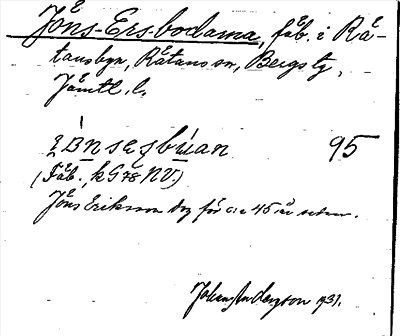 Jöns-Ers-bodarna, fäb. i Rå-
tansbyn, Råtans sn, Bergs tg,
Jämtl. l.
95
(Fäb., k G 78 NV.)
Jöns Eriksson dog för c:a 45 år sedan.
Johan Anderzson 1931.